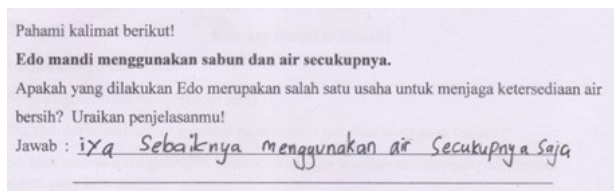 Pahami kalimat berikut!
Edo mandi menggunakan sabun dan air secukupnya.
Apakah yang dilakukan Edo merupakan salah satu usaha untuk menjaga ketersediaan air
bersih? Uraikan penjelasanmu!
Jawab : iya Sebaiknya menggunakan air Secukupnya Saja